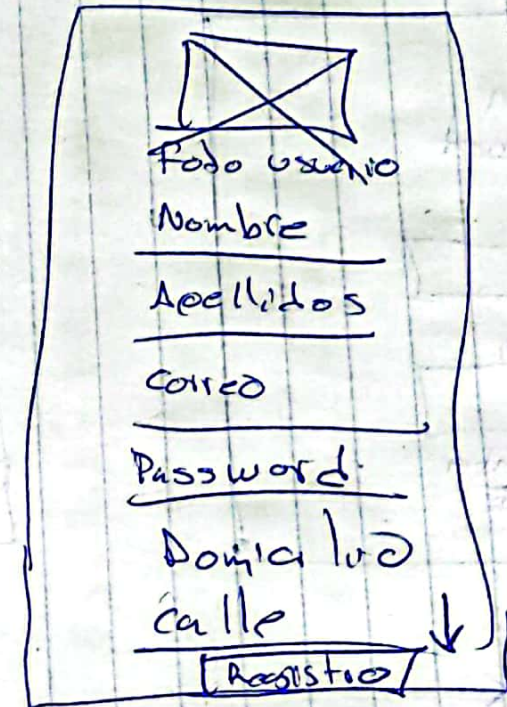 Fodo usuario
Nombre
Apellidos
Correo
Password
Domicilio
calle
Registro